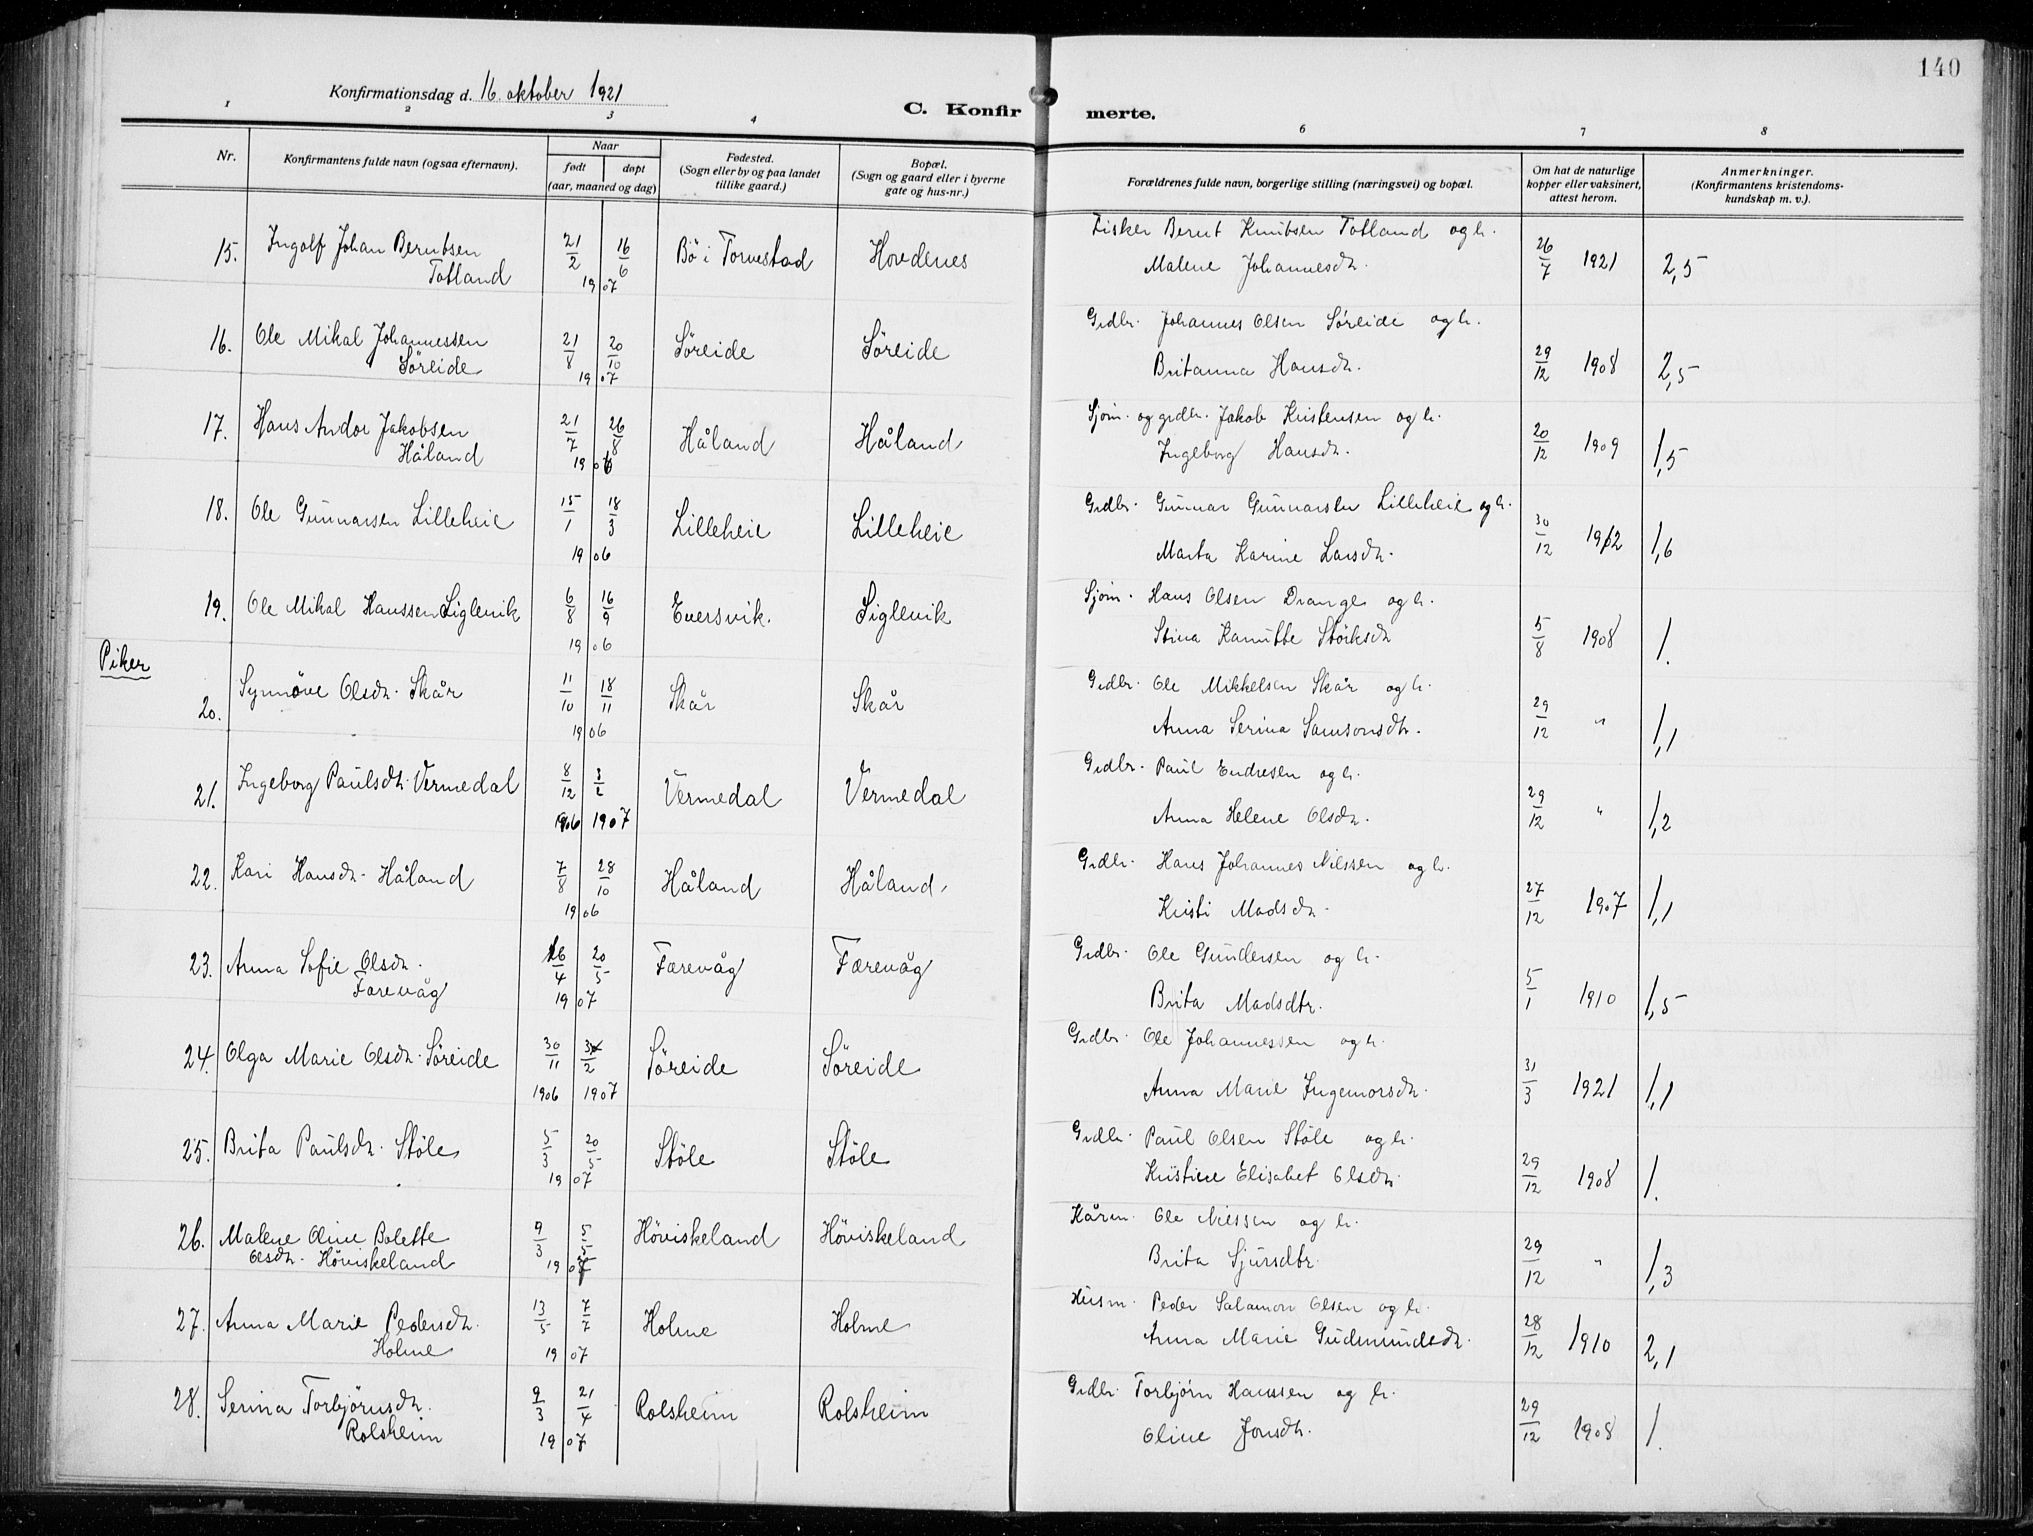 140
Konfirmationsdag d. 16. oktober 1921
C. Konfirmerte.
1 2 3 4 6 7 8
Nr.
Konfirmantens fulde navn (ogsaa efternavn).
Naar
født døpt
(aar, maaned og dag)
Fødested.
(Sogn eller by og paa landet
tillike gaard.)
Bopæl.
(Sogn og gaard eller i byerne
gate og hus-nr.)
Forældrenes fulde navn, borgerlige stilling (næringsvei) og bopæl.
Om hat de naturlige
kopper eller vaksinert,
attest herom.
Anmerkninger.
(Konfirmantens kristendoms-
kundskap m. v.).
15. Ingolf Johan Berntsen 21/2 16/6 Bö i Torvestad Hovdenes Fisker Bernt Knutsen Totland og h. 26/7 1921 2,5
Totland 1907 Malene Johannesdtr.
16. Ole Mikal Johannessen 21/8 20/10 Söreide Söreide Grdbr. Johannes Olsen Söreide og h. 29/12 1908 2,5
Söreide 1907 Britanna Hansdtr.
17. Hans Andor Jakobsen 21/7 26/8 Håland Håland Sjöm. og grdbr. Jakob Kristensen og h. 20/12 1909 1,5
Håland 1906 Ingeborg Hansdtr.
18. Ole Gunnarsen Lilleheie 15/1 18/3 Lilleheie Lilleheie Grdbr. Gunnar Gunnarsen Lilleheie og h. 30/12 1912 1,6
1906 Marta Karine Larsdtr.
19. Ole Mikal Hanssen Siglevik 6/8 16/9 Eversvik. Siglevik Sjöm. Hans Olsen Drange og h. 5/8 1908 1.
1906 Stina Kanutte Störksdtr
Piker
20. Synnöve Olsdtr. Skår 11/10 18/11 Skår Skår Grdbr. Ole Mikkelsen Skår og h. 29/12 " 1,1
1906 Anna Serina Samsonsdtr.
21. Ingeborg Paulsdtr. Vermedal 8/12 3/2 Vermedal Vermedal Grdbr. Paul Endresen og h. 29/12 " 1,2
1906 1907 Anna Helene Olsdtr.
22. Kari Hansdtr. Håland 7/8 28/10 Håland Håland Grdbr. Hans Johannes Nilssen og h. 27/12 1907 1,1
1906 Kristi Madsdtr.
23. Anna Sofie Olsdtr. 26/4 20/5 Færevåg Færevåg Grdbr. Ole Gundersen og h. 5/1 1910 1,5
Færevåg 1907 Brita Madsdtr.
24. Olga Marie Olsdtr. Söreide 30/11 3/2 Söreide Söreide Grdbr. Ole Johannessen og h. 31/3 1921 1,1
1906 1907 Anna Marie Ingemorsdtr.
25. Brita Paulsdtr. Stöle 5/3 20/5 Stöle Stöle Grdbr. Paul Olsen Stöle og h. 29/12 1908 1.
1907 Kristine Elisabet Olsdtr.
26. Malene Oline Bolette 9/3 5/5 Höviskeland Höviskeland Kårm. Ole Nilssen og h. 29/12 " 1,3
Olsdtr. Höviskeland 1907 Brita Sjursdtr.
27. Anna Marie Pedersdtr. 13/5 7/7 Holme Holme Husm. Peder Salamon Olsen og h. 28/12 1910 2,1
Holme 1907 Anna Marie Gudmundsdtr.
28. Serina Torbjörnsdtr. 9/3 21/4 Rolsheim Rolsheim Grdbr. Torbjörn Hanssen og h. 29/12 1908 1.
Rolsheim 1907 Oline Jonsdtr.